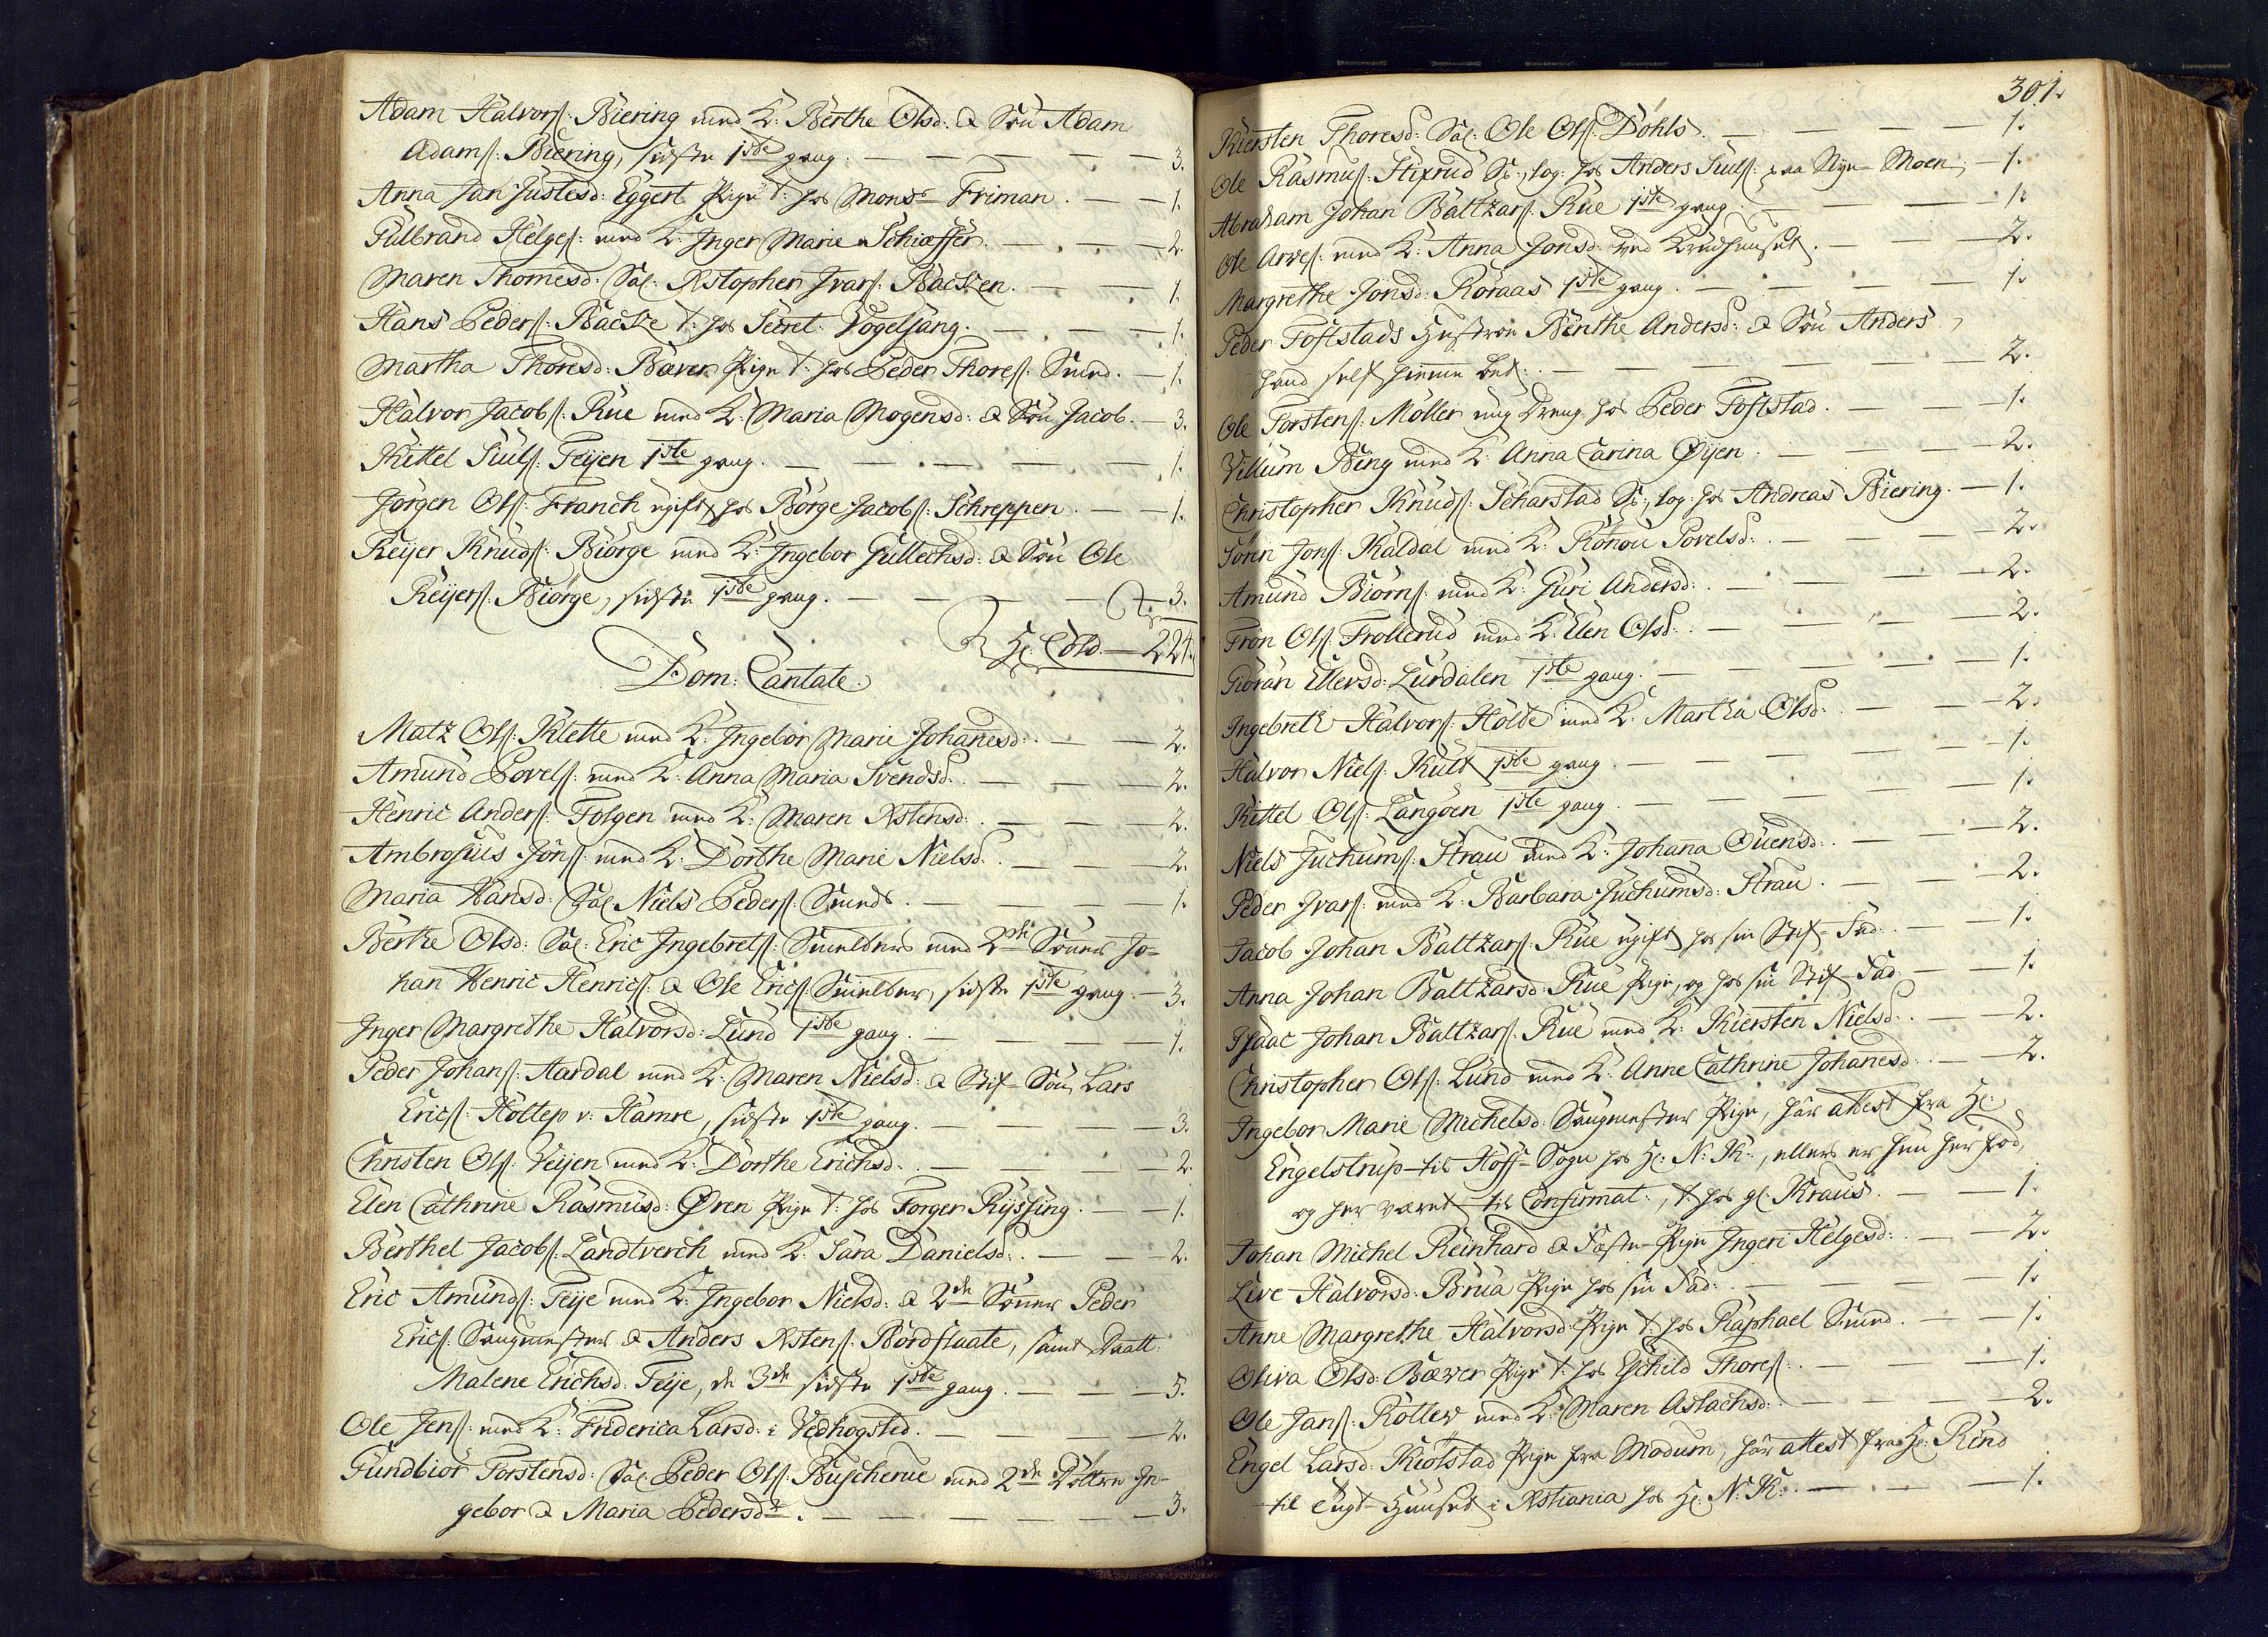 Adam Halvors: Biering med K: Berthe Olsd: & Søn Adam
Adams: Biering, sidste 1ste gang. — 3.
Anna Jan Justesd: Eggert Pige t: hos Monsr Friman. — 1.
Gulbrand Helges: med K: Inger Marie Schiæffer. — 2.
Maren Thomesd: Sal: Xstopher Ivars: Backen. — 1.
Hans Peders: Backe t: hos Secret: Vogelsang. — 1.
Martha Thoresd: Bæver Pige t: hos Peder Thores: Smed. — 1.
Halvor Jacobs: Rue med K: Maria Mogensd: & Søn Jacob. — 3.
Kittel Juuls: Teijen 1ste gang. — 1.
Jørgen Ols: Franck ugift hos Børge Jacobs: Schreppen. — 1.
Reijer Knuds: Biørge med K: Ingebor Gullechsd: & Søn Ole
Reijers: Biørge, sidste 1ste gang. — 3.
224.
Dom: Cantate.
Matz Ols: Klette med K: Ingebor Marie Johanesd: — 2.
Amund Povels: med K: Anna Maria Svendsd: — 2.
Henric Anders: Folgen med K: Maren Xstensd: — 2.
Ambrosius Jons: med K: Dorthe Marie Nielsd: — 2.
Maria Hansd: Sal: Niels Peders: Smeds. — 1.
Berthe Olsd: Sal: Eric Ingebrets: Smelters med 2de Sønner Jo=
han Henric Henrics: & Ole Erics: Smelter, sidste 1ste gang. — 3.
Inger Margrethe Halvorsd: Lund 1ste gang. — 1.
Peder Johans: Aardal med K: Maren Nielsd: & Stif-Søn Lars
Erics: Holtep v: Hamre, sidste 1ste gang. — 3.
Christen Ols: Veijen med K: Dorthe Erichsd: — 2.
Elen Cathrine Rasmusd: Øren Pige t: hos Torger Ryssing. — 1.
Berthel Jacobs: Landtverck med K: Sara Danielsd: — 2.
Eric Amunds: Teije med K: Ingebor Nielsd: & 2de Sønner Peder
Erics: Saugmester & Anders Xstens: Bordstaate, samt Daatt:
Malene Erichsd: Teije, de 3de sidste 1ste gang. — 5.
Ole Jens: med K: Friderica Larsd: i Vedhogsted. — 2.
Gundbiør Torstensd: Sal: Peder Ols: Buscherue med 2de Døttre In-
gebor & Maria Pedersdr. — 3.
301.
Kiersten Thoresd: Sal: Ole Ols: Døhls. — 1.
Ole Rasmus: Stixrud S:, log: hos Anders Juuls: paa Nye-Moen, — 1.
Abraham Johan Baltzars: Rue 1ste gang. — 1.
Ole Arves: med K: Anna Jonsd: ved Krudhuuset. — 2.
Margrethe Jonsd: Røraas 1ste gang. — 1.
Peder Toftstads Hustroe Benthe Andersd: & Søn Anders,
hand self hiemme bet: — 2.
Ole Torstens: Møller ung Dreng hos Peder Toftstad. — 1.
Villum Bing med K: Anna Carina Øijen. — 2.
Christopher Knuds: Scharstad S:, log: hos Andreas Biering. — 1.
Sören Jons: Kaldal med K: Rønou Povelsd: — 2.
Amund Biørns: med K: Guri Andersd: — 2.
Frøn Ols: Trollerud med K: Elen Olsd: — 2.
Gioran Ellersd: Lurdalen 1ste gang. — 1.
Ingebreth Halvors: Holte med K: Martha Olsd: — 2.
Halvor Niels: Kult 1ste gang. — 1.
Kittel Ols: Langøen 1ste gang. — 1.
Niels Juchums: Strau med K: Johana Ouensd: — 2.
Peder Ivars: med K: Barbara Juchumsd: Strau. — 2.
Jacob Johan Baltzars: Rue ugift hos sin Stif-Fad: — 1.
Anna Johan Baltzarsd: Rue Pige, og hos sin Stif-Fad: — 1.
Isaac Johan Baltzars: Rue med K: Kiersten Nielsd: — 2.
Christopher Ols: Lund med K: Anne Cathrine Johanesd: — 2.
Ingebor Marie Michelsd: Saugmester Pige, har attest fra Hr:
Engelstrup til Hoff-Sogn hos Hr: N: K:, ellers er hun her fød,
og her været til Confirmat:, t: hos gl: Kraus. — 1.
Johan Michel Reinhard & Fæste-Pige Ingeri Helgesd: — 2.
Live Halvorsd: Brua Pige hos sin Fad: — 1.
Anne Margrethe Halvorsd: Pige t: hos Raphael Smed. — 1.
Oliva Olsd: Bæver Pige t: hos Eschild Thores: — 1.
Ole Jans: Rotter med K: Maren Aslachsd: — 2.
Engel Larsd: Kiølstad Pige fra Modum, har attest fra Hr: Rind
til Tugt-Huuset i Xstiania hos Hr: N: K: — 1.